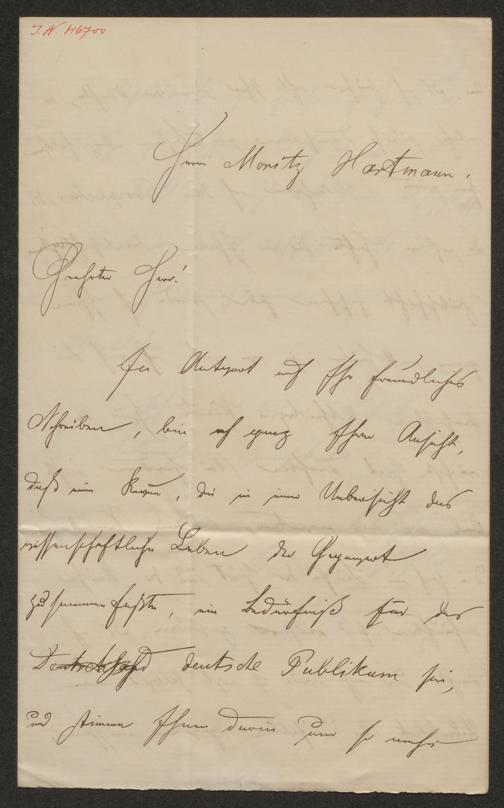 I. N. 46700
Herrn Moritz Hartmann.
Geehrter Herr!
In Antwort auf Ihr freundliches
Schreiben, bin ich ganz Ihrer Ansicht,
daß eine Revue, die in einer Uebersicht das
wissenschaftliche Leben der Gegenwart
zusammenfaßte, ein Bedürfniß für das
deutsche Publikum sei,
und stimme Ihnen darin um so mehr